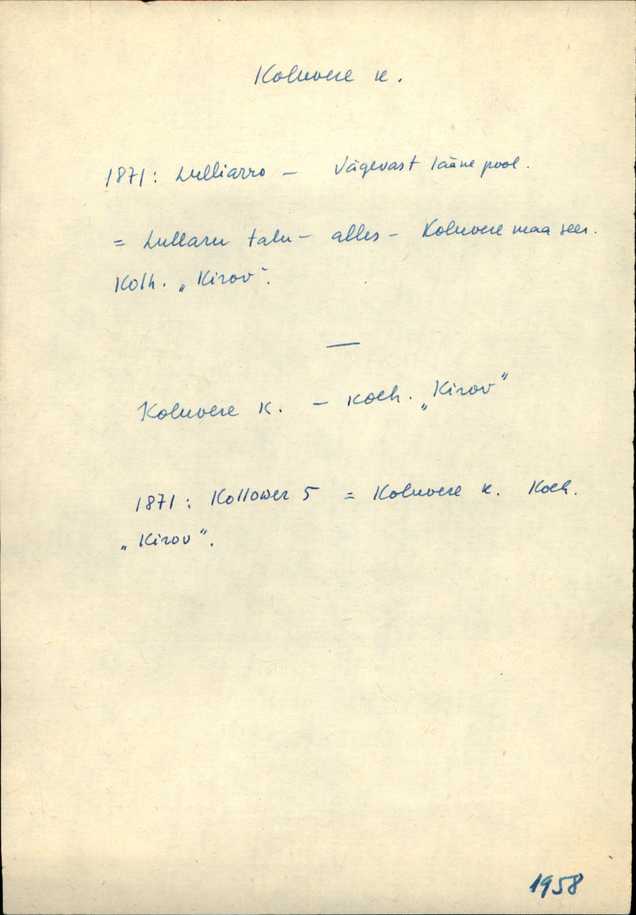 Koluvere k.
1871: Lulliarro – Vägevast lääne pool.
= Lullaru talu – alles – Koluvere maa sees.
Kolh. „Kirov".
—
Koluvere k. – kolh. „Kirov"
1871: Kollower 5 = Koluvere k. Kolh.
„Kirov".
1958